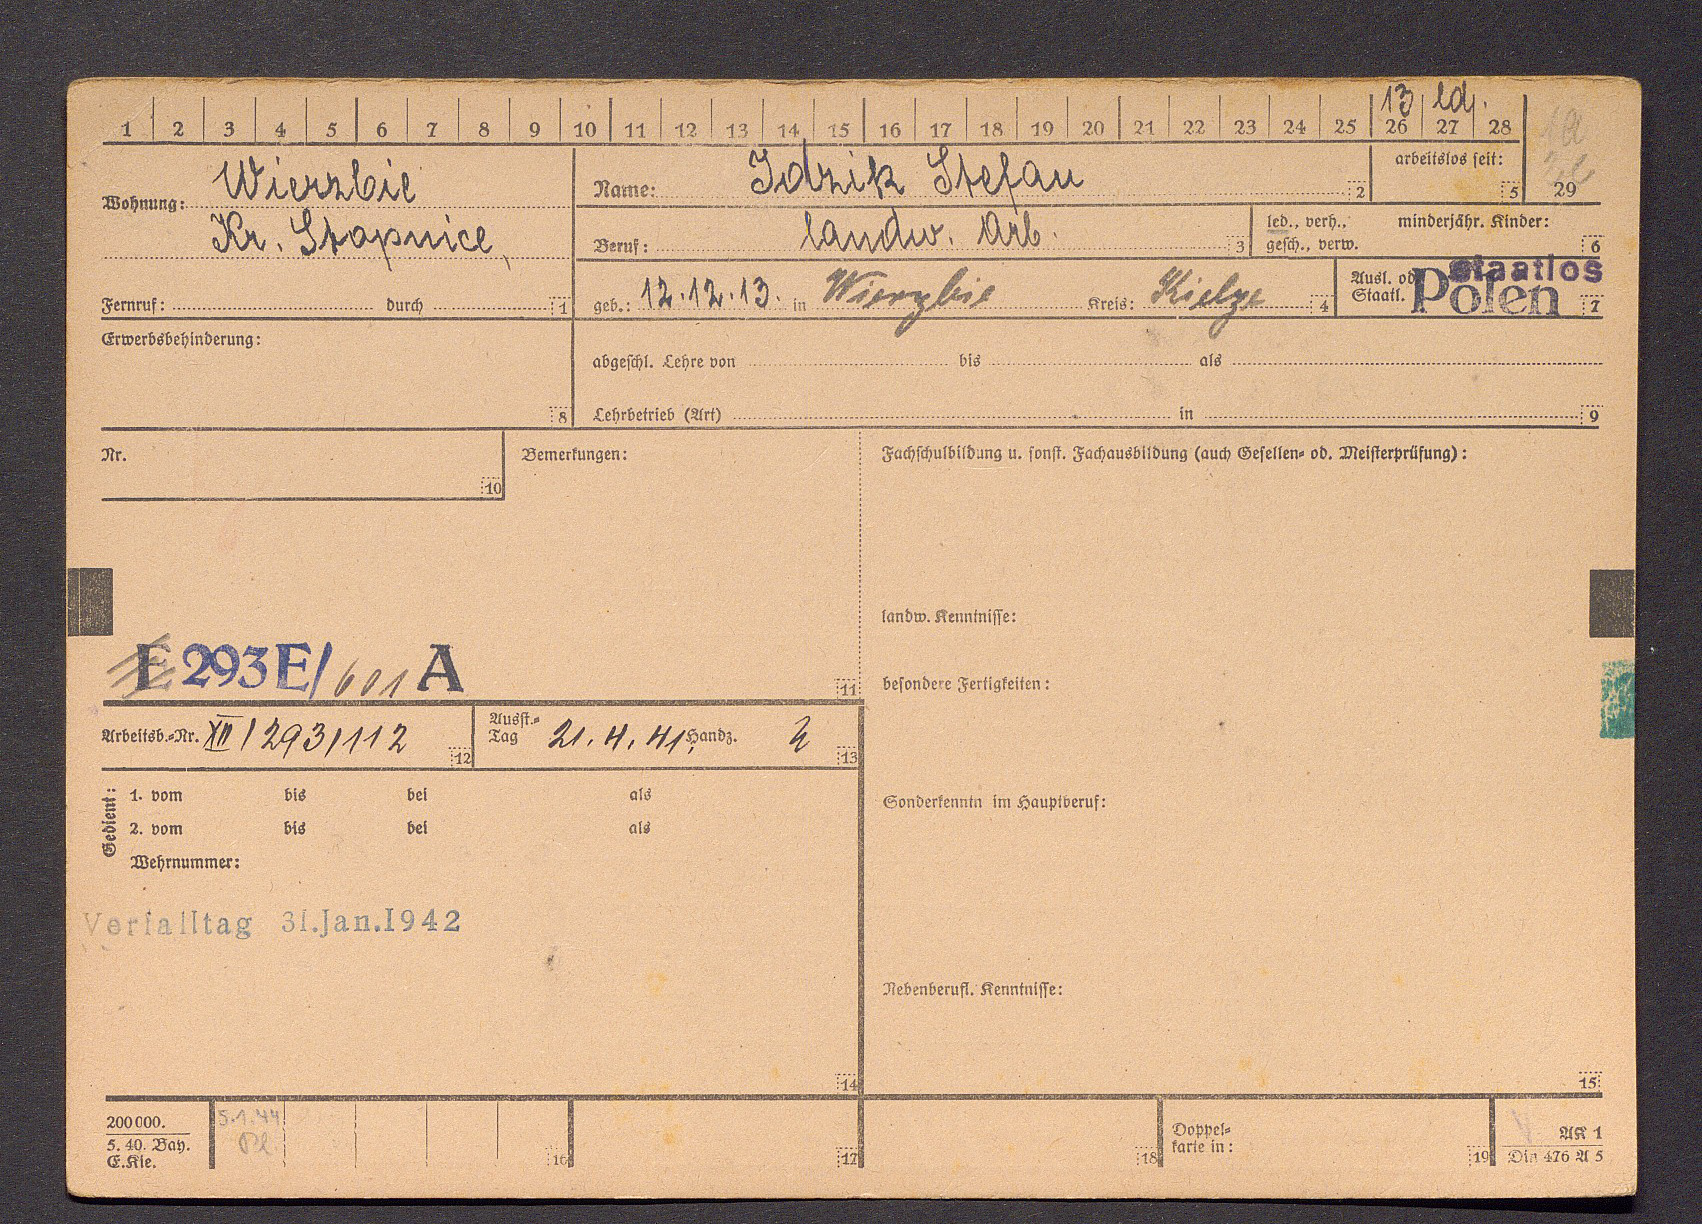 13 ld.
1 2 3 4 5 6 7 8 9 10 11 12 13 14 15 16 17 18 19 20 21 22 23 24 25 26 27 28
29
Wohnung: Wierzbie
Kr. Stopnice,
Fernruf: durch 1
Name: Idzik Stefan 2
arbeitslos seit: 5
Beruf: landw. Arb. 3
led., verh., minderjähr. Kinder:
gesch., verw. 6
geb.: 12.12.13. in Wierzbie Kreis: Kielze 4
Ausl. od.
Staatl. staatlos
Polen 7
Erwerbsbehinderung:
8
abgeschl. Lehre von bis als
Lehrbetrieb (Art) in 9
Nr.
10
Bemerkungen:
Fachschulbildung u. sonst. Fachausbildung (auch Gesellen- od. Meisterprüfung):
landw. Kenntnisse:
E 293 E/ 601 A
11
besondere Fertigkeiten:
Arbeitsb.-Nr. XII/293/112 12
Ausst.-
Tag 21.4.41. Handz. 13
Gedient:
1. vom bis bei als
2. vom bis bei als
Wehrnummer:
Sonderkenntn im Hauptberuf:
Verfalltag 31.Jan.1942
Nebenberufl. Kenntnisse:
14
15
200000.
5. 40. Bay.
E.Kle.
5.1.44
16
17
18
Doppel-
karte in:
19
AK 1
Din 476 A 5